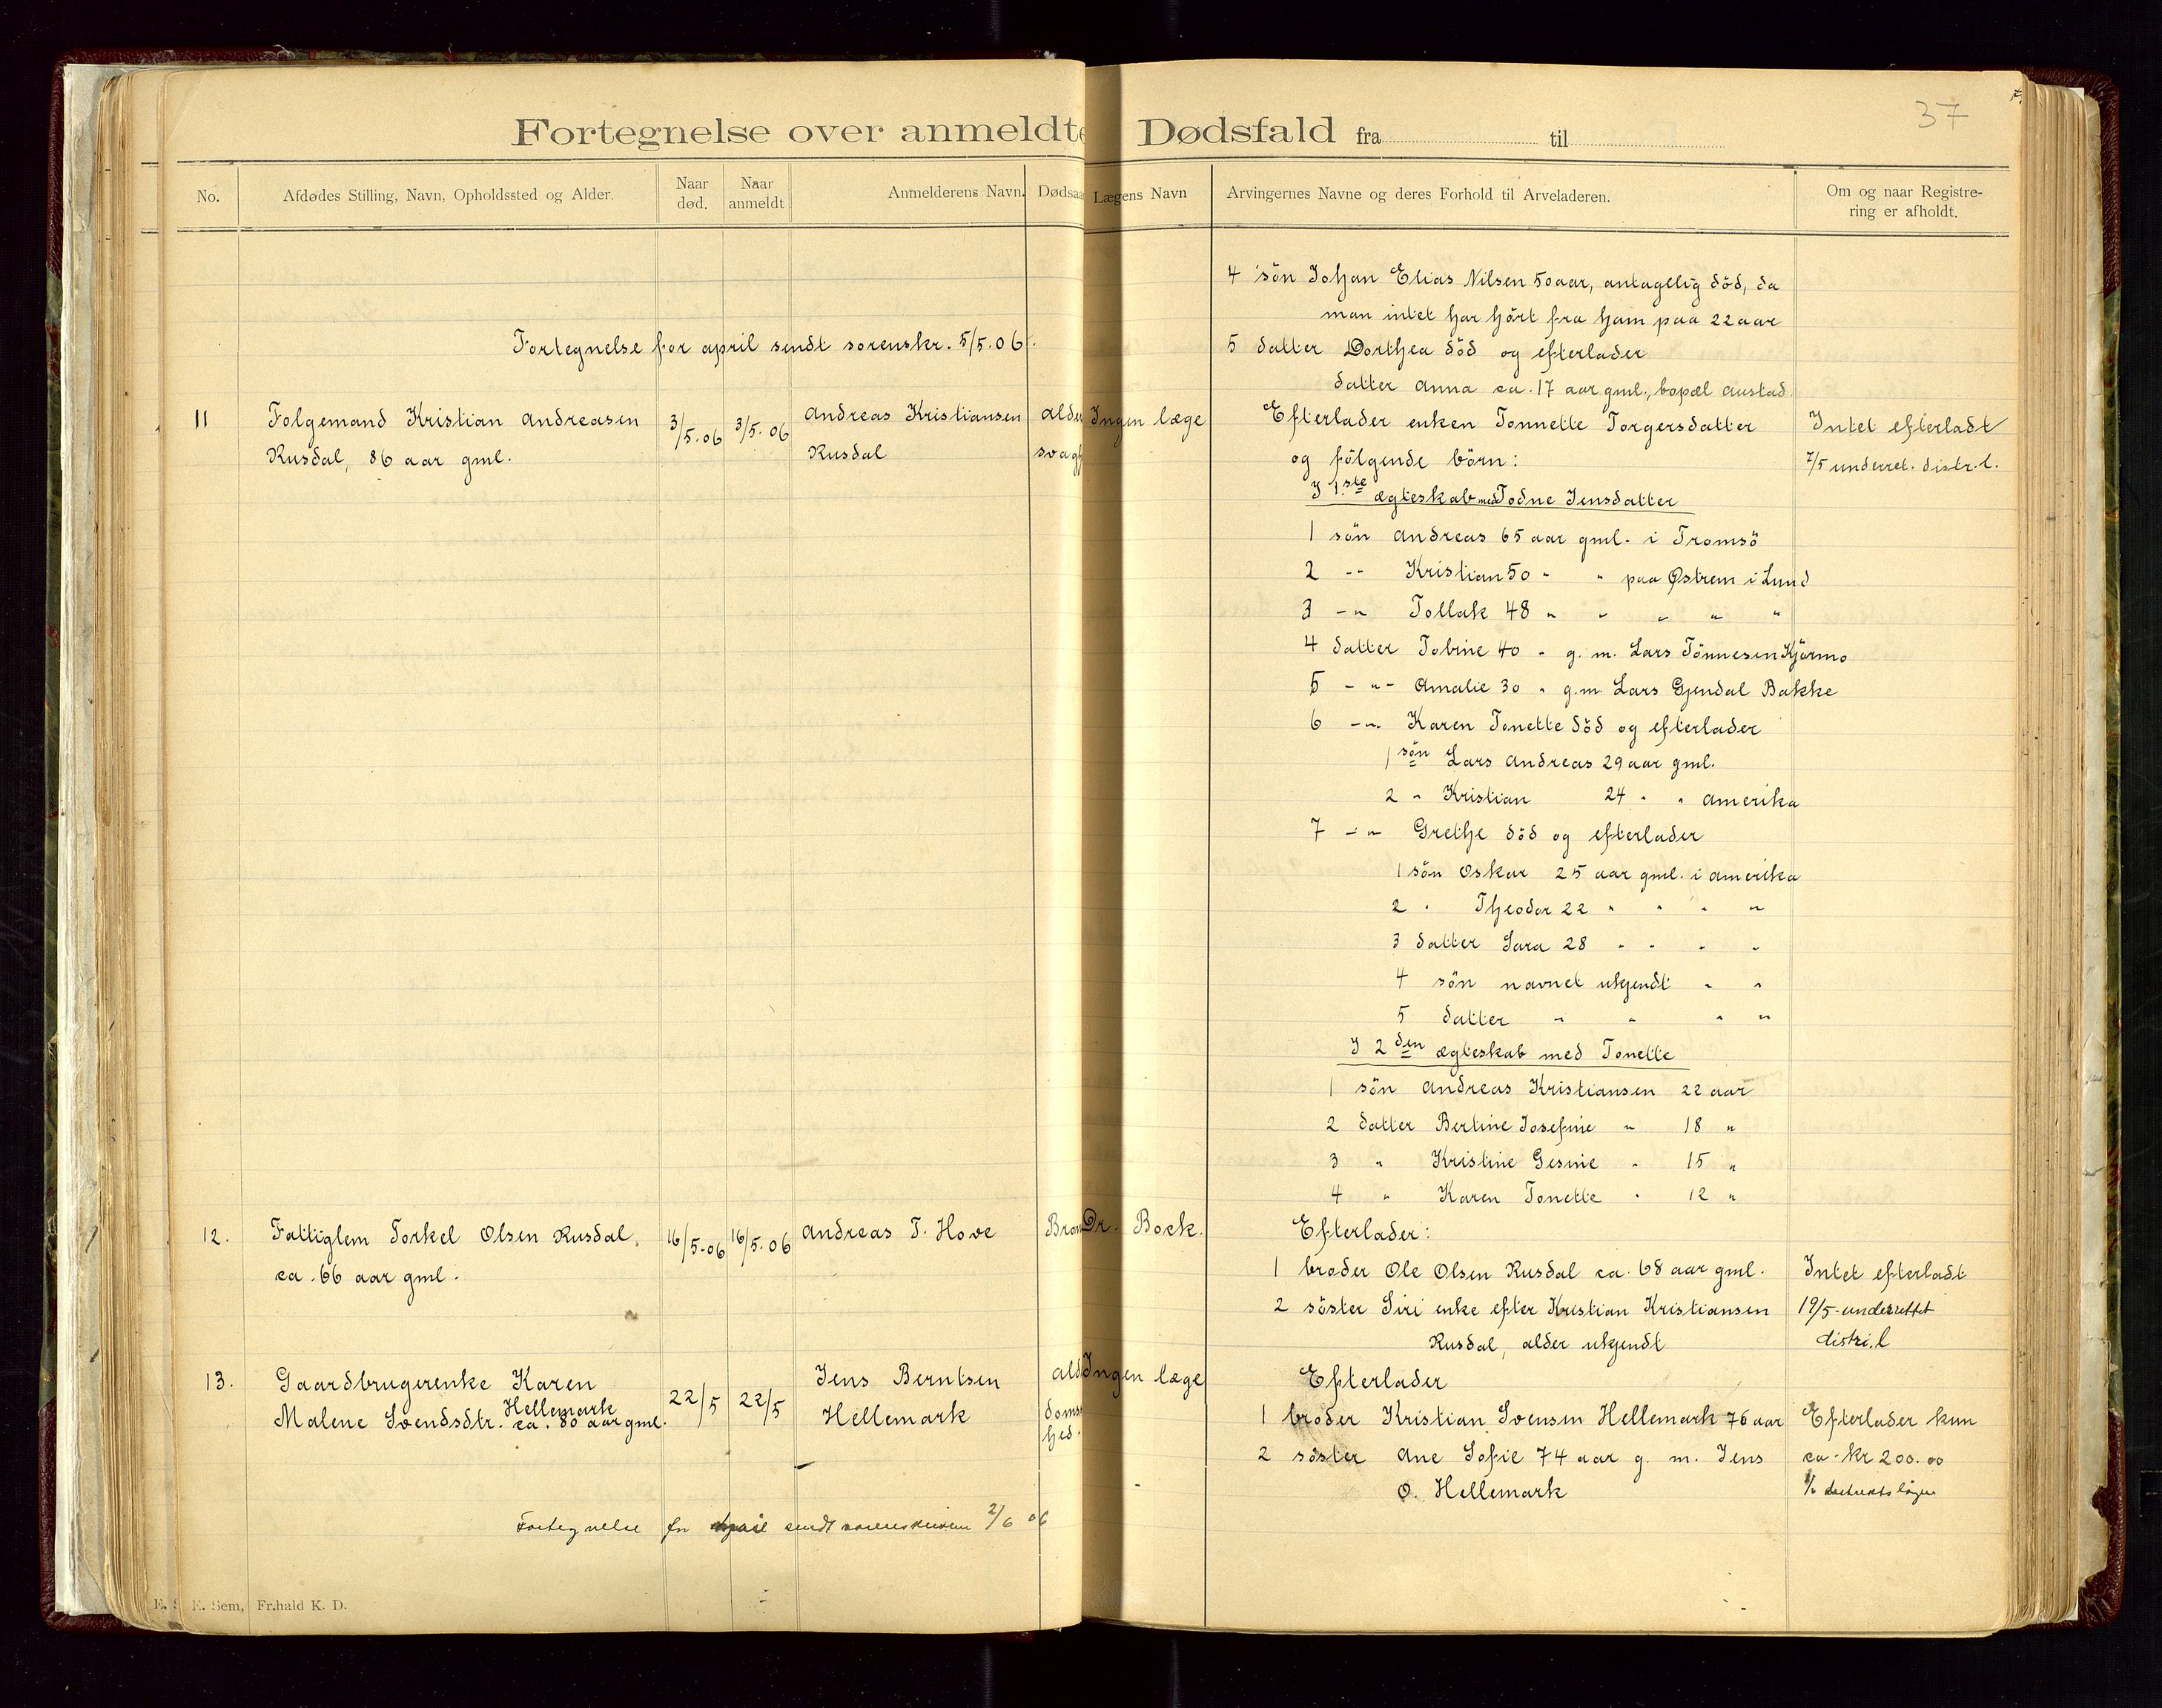 37
Fortegnelse over anmeldte Dødsfald fra til
No. Afdødes Stilling, Navn, Opholdssted og Alder. Naar død. Naar anmeldt Anmelderens Navn. Dødsaa Lægens Navn Arvingernes Navne og deres Forhold til Arveladeren. Om og naar Registrering er afholdt.
4 sön Johan Elias Nilsen 50 aar, antagelig död, da
man intet har hört fra ham paa 22 aar
Fortegnelse for april sendt sorenskr. 5/5.06.
5 datter Dorthea död og efterlader
datter Anna ca. 17 aar gml., bopæl Austad
11 Folgemand Kristian Andreasen 3/5.06 3/5.06 Andreas Kristiansen alder Ingen læge Efterlader enken Tonnette Torgersdatter Intet efterladt
Rusdal, 86 aar gml. Rusdal svagh og fölgende börn: 7/5 underret. distr. l.
I 1.ste ægteskab med Todne Jensdatter
1 sön Andreas 65 aar gml. i Tromsö
2 -"- Kristian 50 " " paa Østrem i Lund
3 -"- Tollak 48 " " " " "
4 datter Tobine 40 " g. m. Lars Tönnesen Kjörmo
5 -"- Amalie 30 " g. m. Lars Gjendal Bakke
6 -"- Karen Tonette död og efterlader
1 sön Lars Andreas 29 aar gml.
2 " Kristian 24 " " Amerika
7 -"- Grethe död og efterlader
1 sön Oskar 25 aar gml. i Amerika
2 " Theodor 22 " " " "
3 datter Sara 28 " " " "
4 sön navnet ukjendt " "
5 datter " " " "
I 2den ægteskab med Tonette
1 sön Andreas Kristiansen 22 aar
2 datter Bertine Josefine " 18 "
3 " Kristine Gesine " 15 "
4 " Karen Tonette " 12 "
12. Fattiglem Torkel Olsen Rusdal, 16/5.06 16/5.06 Andreas T. Hove Bron Dr. Bock. Efterlader:
ca. 66 aar gml. 1 broder Ole Olsen Rusdal ca. 68 aar gml. Intet efterladt
2 söster Siri enke efter Kristian Kristiansen 19/5 underrettet
Rusdal, alder ukjendt distr. l
13. Gaardbrugerenke Karen 22/5 22/5 Jens Berntsen ald Ingen læge Efterlader
Malene Svendsdtr. Hellemark ca. 80 aar gml. Hellemark doms hed. 1 broder Kristian Svensen Hellemark 76 aar Efterlader kun
2 söster Ane Sofie 74 aar g. m. Jens ca. Kr 200.00
O. Hellemark
Fortegnelse for sendt sorenskriveren 2/6 06
E. Sem, Fr.hald K. D.